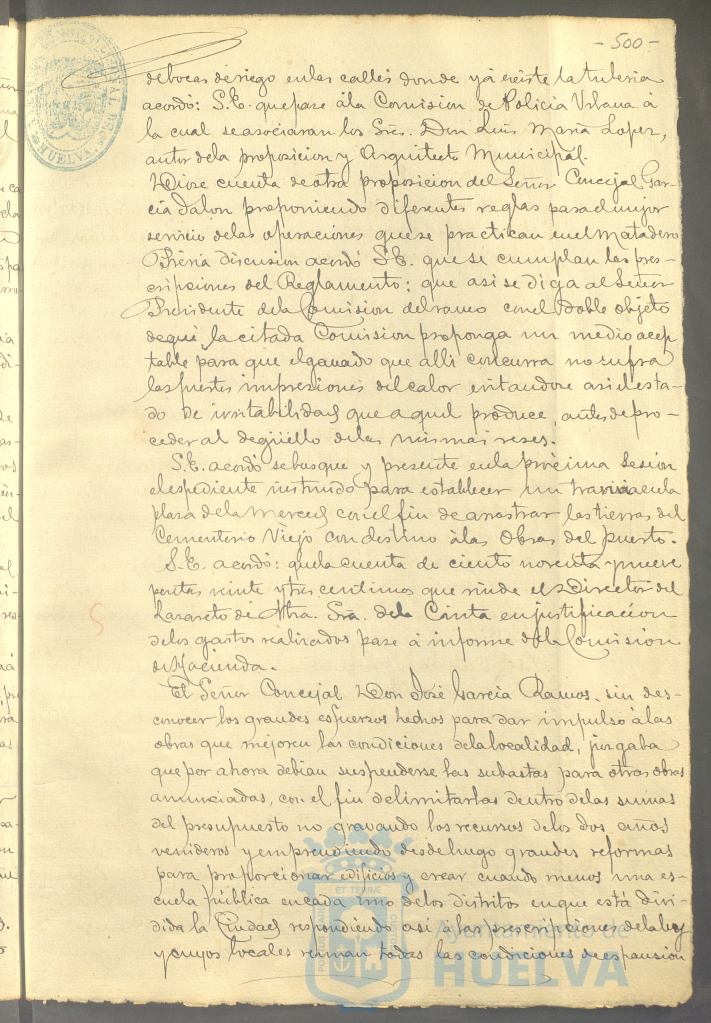 - 500 -
de bocas de riego en las calles donde yá existe la tuberia
acordó: S.E. que pase á la Comision de Policia Urbana á
la cual se asociaran los Sres. Don Luis Maria Lopez,
autor de la proposicion y Arquitecto Municipal.
Diose cuenta de otra proposicion del Señor Concejal Gar-
cia Jalon proponiendo diferentes reglas para el mejor
servicio de las operaciones que se practican en el Matadero
Prévia discusion acordó S.E. que se cumplan las pres-
cripciones del Reglamento; que asi se diga al Señor
Presidente de la Comision del ramo con el doble objeto
de que la citada Comision proponga un medio acep
table para que el ganado que alli concurra no sufra
las fuertes impresiones del calor evitandose asi el esta-
do de irritabilidad que aquel produce, antes de pro-
ceder al degüello de las mismas reses.
S.E. acordó se busque y presente en la próxima sesion
el espediente instruido para establecer un tranvia en la
plaza de la Merced con el fin de arrastrar las tierras del
Cementerio Viejo con destino á las Obras del puerto.
S.E. acordó: que la cuenta de ciento noventa y nueve
pesetas veinte y tres centimos que rinde el Director del
Lazareto de Ntra. Sra. de la Cinta en justificación
de los gastos realizados pase á informe de la Comision
de Hacienda.
El Señor Concejal Don José Garcia Ramos, sin des-
conocer los grandes esfuerzos hechos para dar impulso á las
obras que mejoren las condiciones de la localidad, juzgaba
que por ahora debian suspenderse las subastas para otras obras
anunciadas, con el fin de limitarlas dentro de las sumas
del presupuesto no gravando los recursos de los dos años
venideros y emprendiendo desde luego grandes reformas
para proporcionar edificios y crear cuando menos una es-
cuela pública en cada uno de los distritos en que está divi-
dida la Ciudad respondiendo asi á las prescripciones de la ley
y cuyos locales reunan todas las condiciones de espansión
HUELVA
Ayuntamiento de
HUELVA